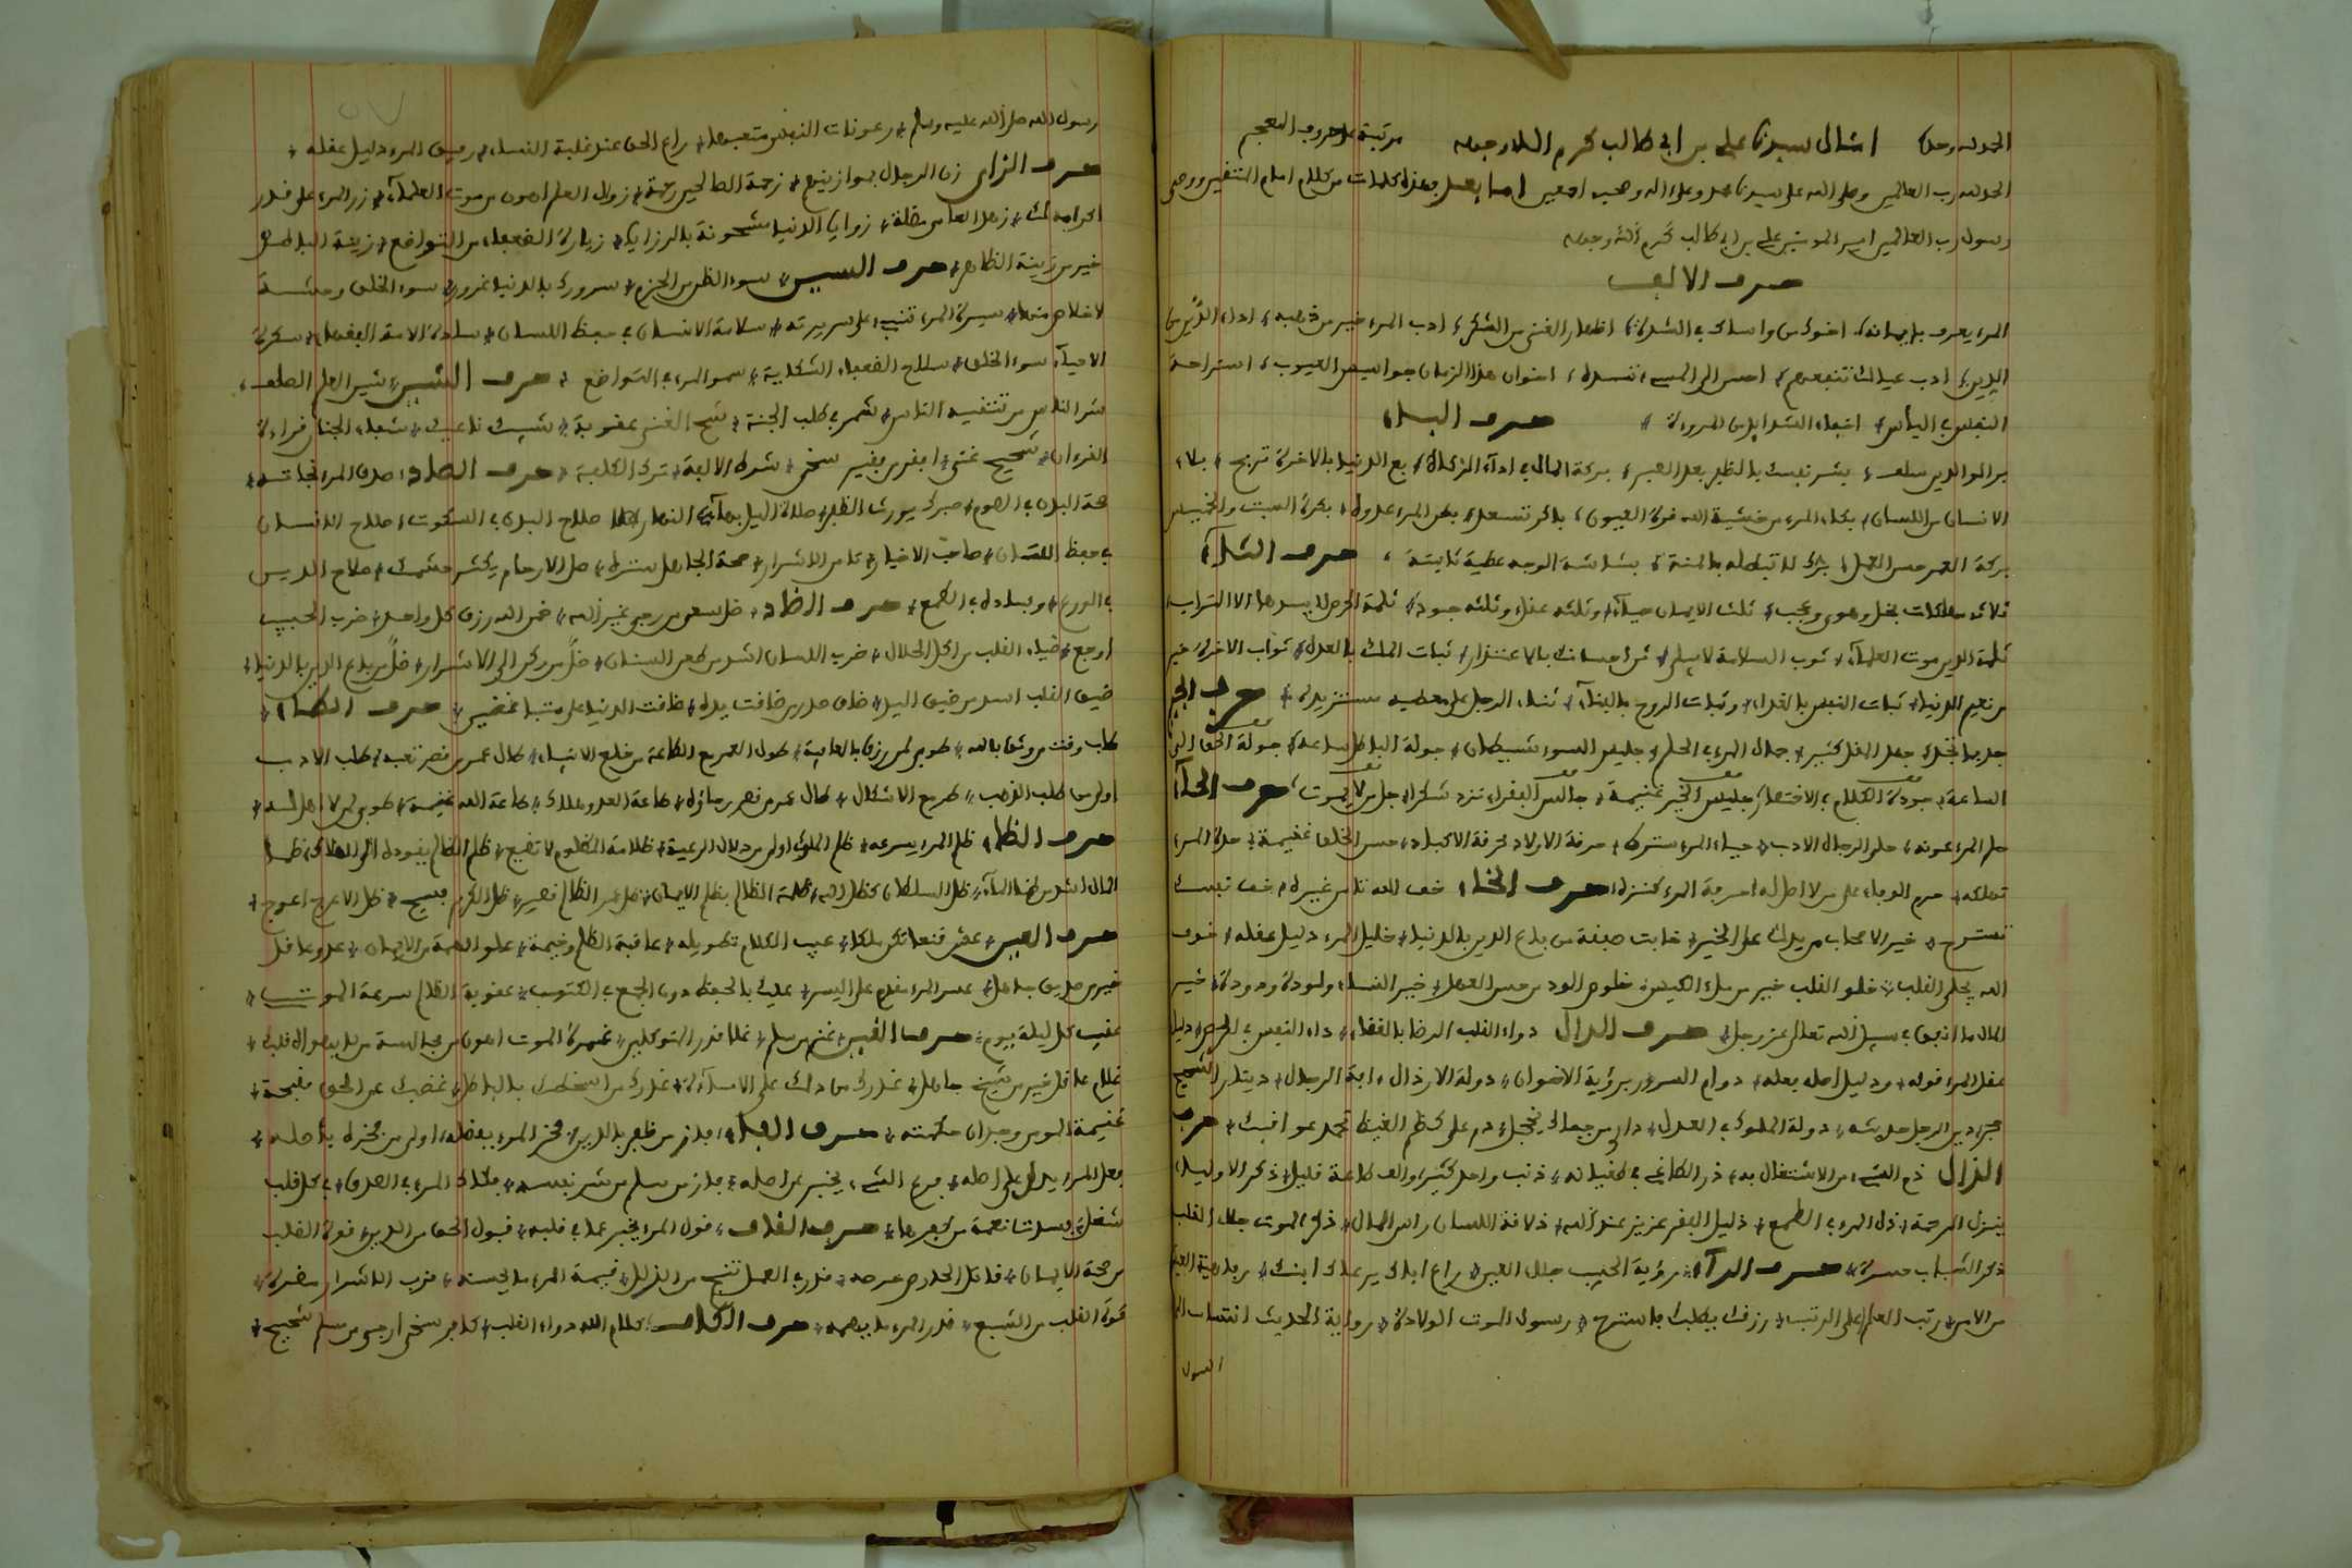 الحمد لله وحده امثال سيدنا علي بن ابي طالب كرم الله وجهه مرتبة على حروف المعجم
الحمد لله رب العالمين وصلى الله على سيدنا محمد وعلى اله وصحبه اجمعين اما بعد بهذه كلمات من كلام امام المتقين ووصي
رسول رب العالمين امير المومنين علي بن ابي طالب كرم الله وجهه
حرف الالف
المرء يعرف بايمانه اخوك من واساك في الشدة اظهار الغنى من الشكر ادب المرء خير من ذهبه اداء الدين من
الدين ادب عيالك تنفعهم احسن الى المسيء تسده اخوان هذا الزمان جواسيس العيوب استراحة
النفس في الياس اخفاء الشدايد من المروءة حرف الباء
بر الوالدين سلف بشر نفسك بالظفر بعد الصبر بركة المال في اداء الزكاة بع الدنيا بالاخرة تربح بلاء
الانسان من اللسان بكاء المرء من خشية الله قرة العيون باكر تسعد بطن المرء عدوه بكرة السبت والخميس
بركة العمر حسن العمل برك لا تبطله بالمنة بشاشة الوجه عطية ثانية حرف الثاء
ثلاث مهلكات بخل وهوى وعجب ثلث الايمان حياء وثلثه عقل وثلثه جود ثلمة الحرص لا يسدها الا التراب
ثلمة الدين موت العلماء ثوب السلامة لا يبلى ثن احسانك بالاعتذار ثبات الملك بالعدل ثواب الاخرة خير
من نعيم الدنيا ثبات النفس بالغذاء وثبات الروح بالغناء ثناء الرجل على معطيه مستزيده حرف الجيم
جد بما تجد جهد المقل كثير جمال المرء في الحلم جليس السوء شيطان جولة الباطل ساعة جولة الحق الى
الساعة جودة الكلام في الاختصار جليس الخير غنيمة جالس الفقراء تزدد شكرا جل من لا يموت حرف الحاء
حلم المرء عونه حلى الرجال الادب حياء المرء ستره حرفة الاولاد محرقة الاكباد حسن الخلق غنيمة حدة المرء
تهلكه حرم الوفاء على من لا اصل له حرفة المرء كنزه حرف الخاء خف الله تامن غيره خالف نفسك
تسترح خير الاصحاب من يدلك على الخير خابت صفقة من باع الدين بالدنيا خليل المرء دليل عقله خوف
الله يجلي القلب خلو القلب خير من ملء الكيس خلوص الود من حسن العهد خير النساء ولودة ودودة خير
المال ما انفق في سبيل الله تعالى عز وجل حرف الدال دواء القلب الرضا بالقضاء داء النفس في الحرص دليل
عقل المرء قوله ودليل اصله فعله دوام السرور برؤية الاخوان دولة الارذال ءافة الرجال دينار الشحيح
حجر دين الرجل حديثه دولة الملوك في العدل دار من جفاك يخجل دم على كظم الغيظ تحمد عواقبك حرف
الذال ذم الشيء من الاشتغال به ذر الطاغي في طغيانه ذنب واحد كثير والف طاعة قليل ذكر الاولياء
ينزل الرحمة ذل المرء في الطمع ذليل الفقر عزيز عند الله ذلاقة اللسان راس المال ذكر الموت جلاء القلب
ذكر الشباب حسرة حرف الراء رؤية الحبيب جلاء العين راع اباك يرعاك ابنك رفاهية العيش
من الامن رتبة العلم اعلى الرتب رزقك يطلبك فاسترح رسول الموت الولادة رواية الحديث انتساب الى
الرسول
رسول الله صلى الله عليه وسلم رعونات النفس متعبها راع الحق عند غلبة النفس رفيق المرء دليل عقله
حرف الزاي زن الرجال بموازينهم زحمة الصالحين رحمة زوال العلم اهون من موت العلماء زر المرء على قدر
اكرامه لك زهد العامي مضلة زوايا الدنيا مشحونة بالرزايا زيارة الضعفاء من التواضع زينة الباطن
خير من زينة الظاهر حرف السين سوء الظن من الحزم سرورك بالدنيا غرور سوء الخلق وحشة
لا خلاص منها سيرة المرء تنبيء على سريرته سلامة الانسان في حفظ اللسان سادة الامة الفقهاء سكرة
الاحياء سوء الخلق سلاح الضعفاء الشكاية سمو المرء في التواضع حرف الشين شين العلم الصلف
شر الناس من تتقيه الناس شمر في طلب الجنة شح الغنى عقوبة شيبك ناعيك شفاء الجنان قراءة
القرءان شحيح غني افقر من فقير سخي شرط الالفة ترك الكلفة حرف الصاد صدق المرء نجاته
صحة البدن في الصوم صبرك يورث الظفر صلاة الليل بهاء النهار صلاح البدن في السكوت صلاح الانسان
في حفظ اللسان صاحب الاخيار تامن الاشرار صمت الجاهل ستره صل الارحام يكثر حشمك صلاح الدين
في الورع وفساده في الطمع حرف الضاد ضل سعي من رجى غير الله ضمن الله رزق كل واحد ضرب الحبيب
اوجع ضياء القلب من اكل الحلال ضرب اللسان اشد من طعن السنان ضل من ركن الى الاشرار ضل من باع الدين بالدنيا
ضيق القلب اشد من ضيق اليد ضاق صدر من ضاقت يده ضاقت الدنيا على متباغضين حرف الطاء
طاب وقت من وثق بالله طوبى لمن رزق بالعافية طول العمر مع الطاعة من خلع الانبياء طال عمر من قصر تعبه طلب الادب
اولى من طلب الذهب طال عمر من قصر رجاؤه طاعة العدو هلاك طاعة الله غنيمة طوبى لمن لا اهل له
حرف الظاء ظلم المرء يصرعه ظلم الملوك اولى من دلال الرعية ظلامة المظلوم لا تضيع ظلم الظالم يقوده الى الهلاك ظما
المال اشد من ظما الماء ظل السلطان كظل الله ظلمة الظالم بظلم الايمان ظل عمر الظالم قصير ظل الكريم فسيح ظل الاعرج اعوج
حرف العين عش قنعا تكن ملكا عيب الكلام تطويله عاقبة الظلم وخيمة علو الهمة من الايمان عدو عاقل
خير من صديق جاهل عسر المرء مقدم على اليسر عليك بالحفظ دون الجمع في الكتب عقوبة الظالم سرعة الموت
عقيب كل ليلة يوم حرف الغين غنم من سلم غلا قدر المتوكلين غمرة الموت اهون من مجالسة من لا يهواه قلبك
غلام عاقل خير من شيخ جاهل غدرك من دلك على الاساءة غدرك من اسخطك بالباطل غضبك عن الحق مقبحة
غنيمة المومن وجدان حكمته حرف الفاء فاز من ظفر بالدين فخر المرء بفضله اولى من فخره باصله
فعل المرء يدل على اصله فرع الشيء يخبر عن اصله فاز من سلم من شر نفسه فكاك المرء في الصدق في كل قلب
شغل فسدت نعمة من كفرها حرف القاف قول المرء يخبر عما في قلبه قبول الحق من الدين قوة القلب
من صحة الايمان قاتل الحريص حرصه قدر في العمل تنج من الزلل قيمة المرء ما يحسنه قرب الاشرار مضرة
قسوة القلب من الشبع قدر المرء ما يهمه حرف الكاف كلام الله دواء القلب كافر سخي ارجى من مسلم شحيح